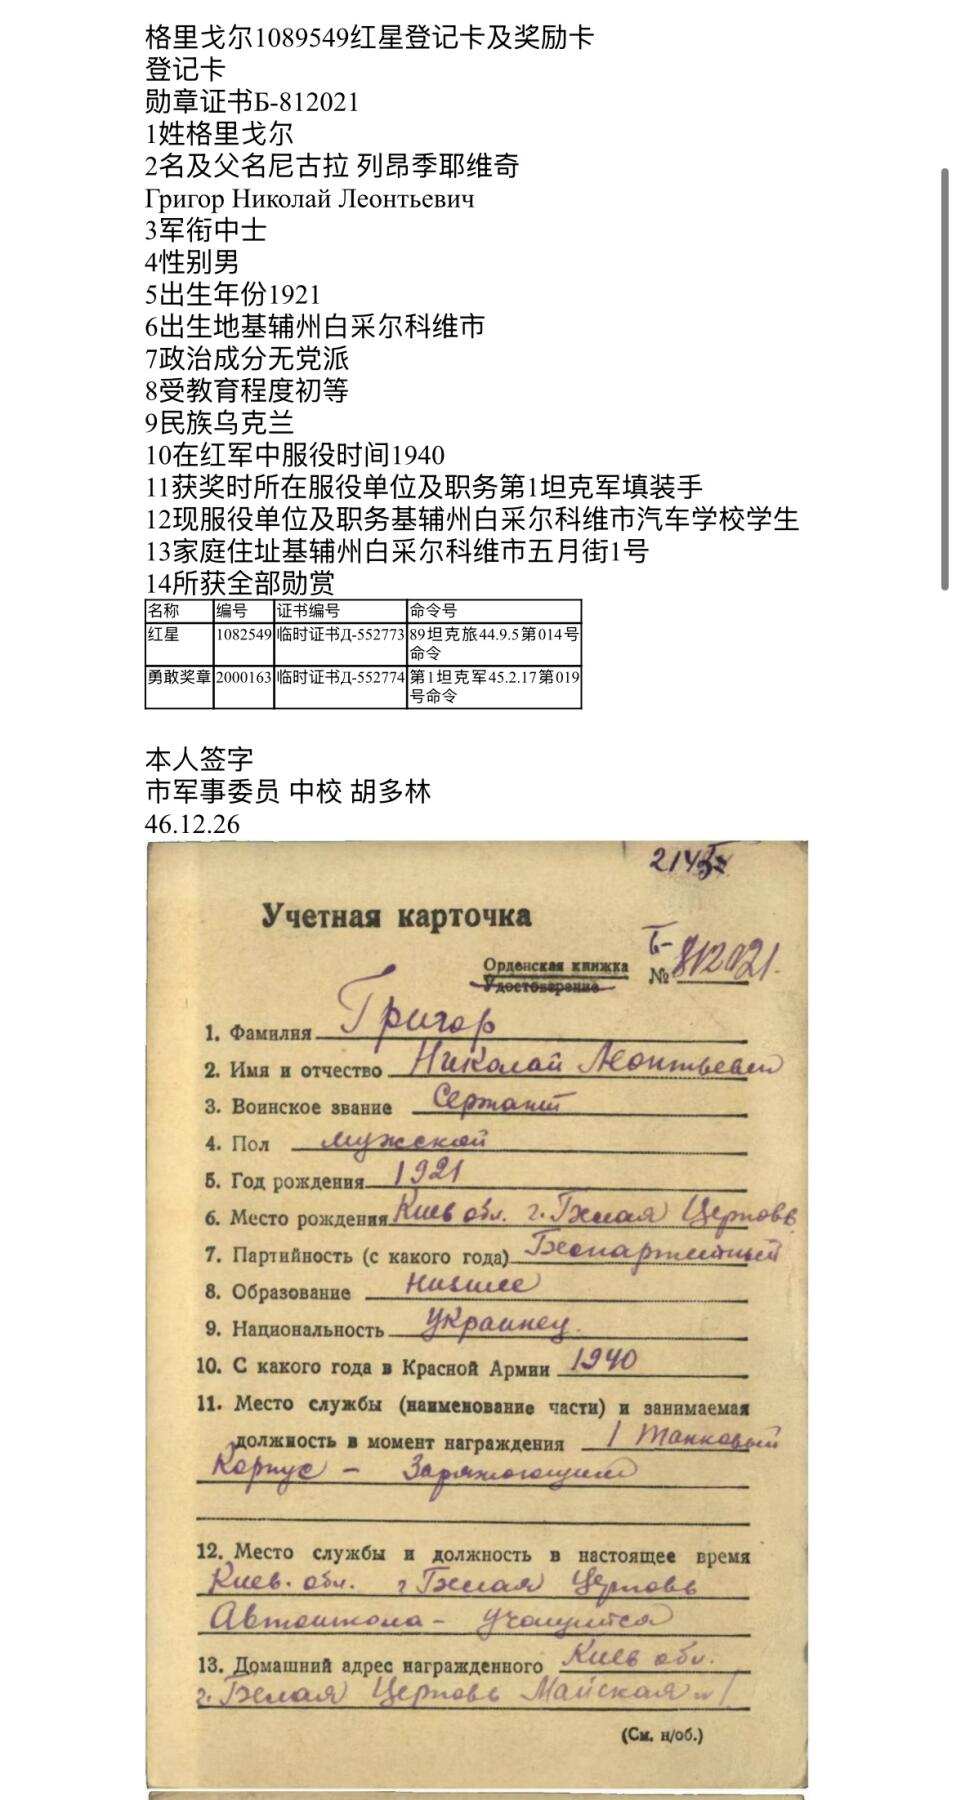 格里戈尔1089549红星登记卡及奖励卡
登记卡
勋章证书Б-812021
1姓格里戈尔
2名及父名尼古拉 列昂季耶维奇
Григор Николай Леонтьевич
3军衔中士
4性别男
5出生年份1921
6出生地基辅州白采尔科维市
7政治成分无党派
8受教育程度初等
9民族乌克兰
10在红军中服役时间1940
11获奖时所在服役单位及职务第1坦克军填装手
12现服役单位及职务基辅州白采尔科维市汽车学校学生
13家庭住址基辅州白采尔科维市五月街1号
14所获全部勋赏
名称 编号 证书编号 命令号
红星 1082549 临时证书Д-552773 89坦克旅44.9.5第014号命令
勇敢奖章 2000163 临时证书Д-552774 第1坦克军45.2.17第019号命令
本人签字
市军事委员 中校 胡多林
46.12.26
Учетная карточка
Орденская книжка Б-
Удостоверение № 812021.
1. Фамилия Григор
2. Имя и отчество Николай Леонтьевич
3. Воинское звание Сержант
4. Пол мужской
5. Год рождения 1921
6. Место рождения Киев обл. г. Белая Церковь
7. Партийность (с какого года) Беспартийный
8. Образование низшее
9. Национальность Украинец.
10. С какого года в Красной Армии 1940
11. Место службы (наименование части) и занимаемая
должность в момент награждения 1 Танковый
Корпус - Заряжающий
12. Место службы и должность в настоящее время
Киев. обл. г Белая Церковь
Автошкола - учащийся
13. Домашний адрес награжденного Киев обл.
г. Белая Церковь Майская 1
(См. н/об.)